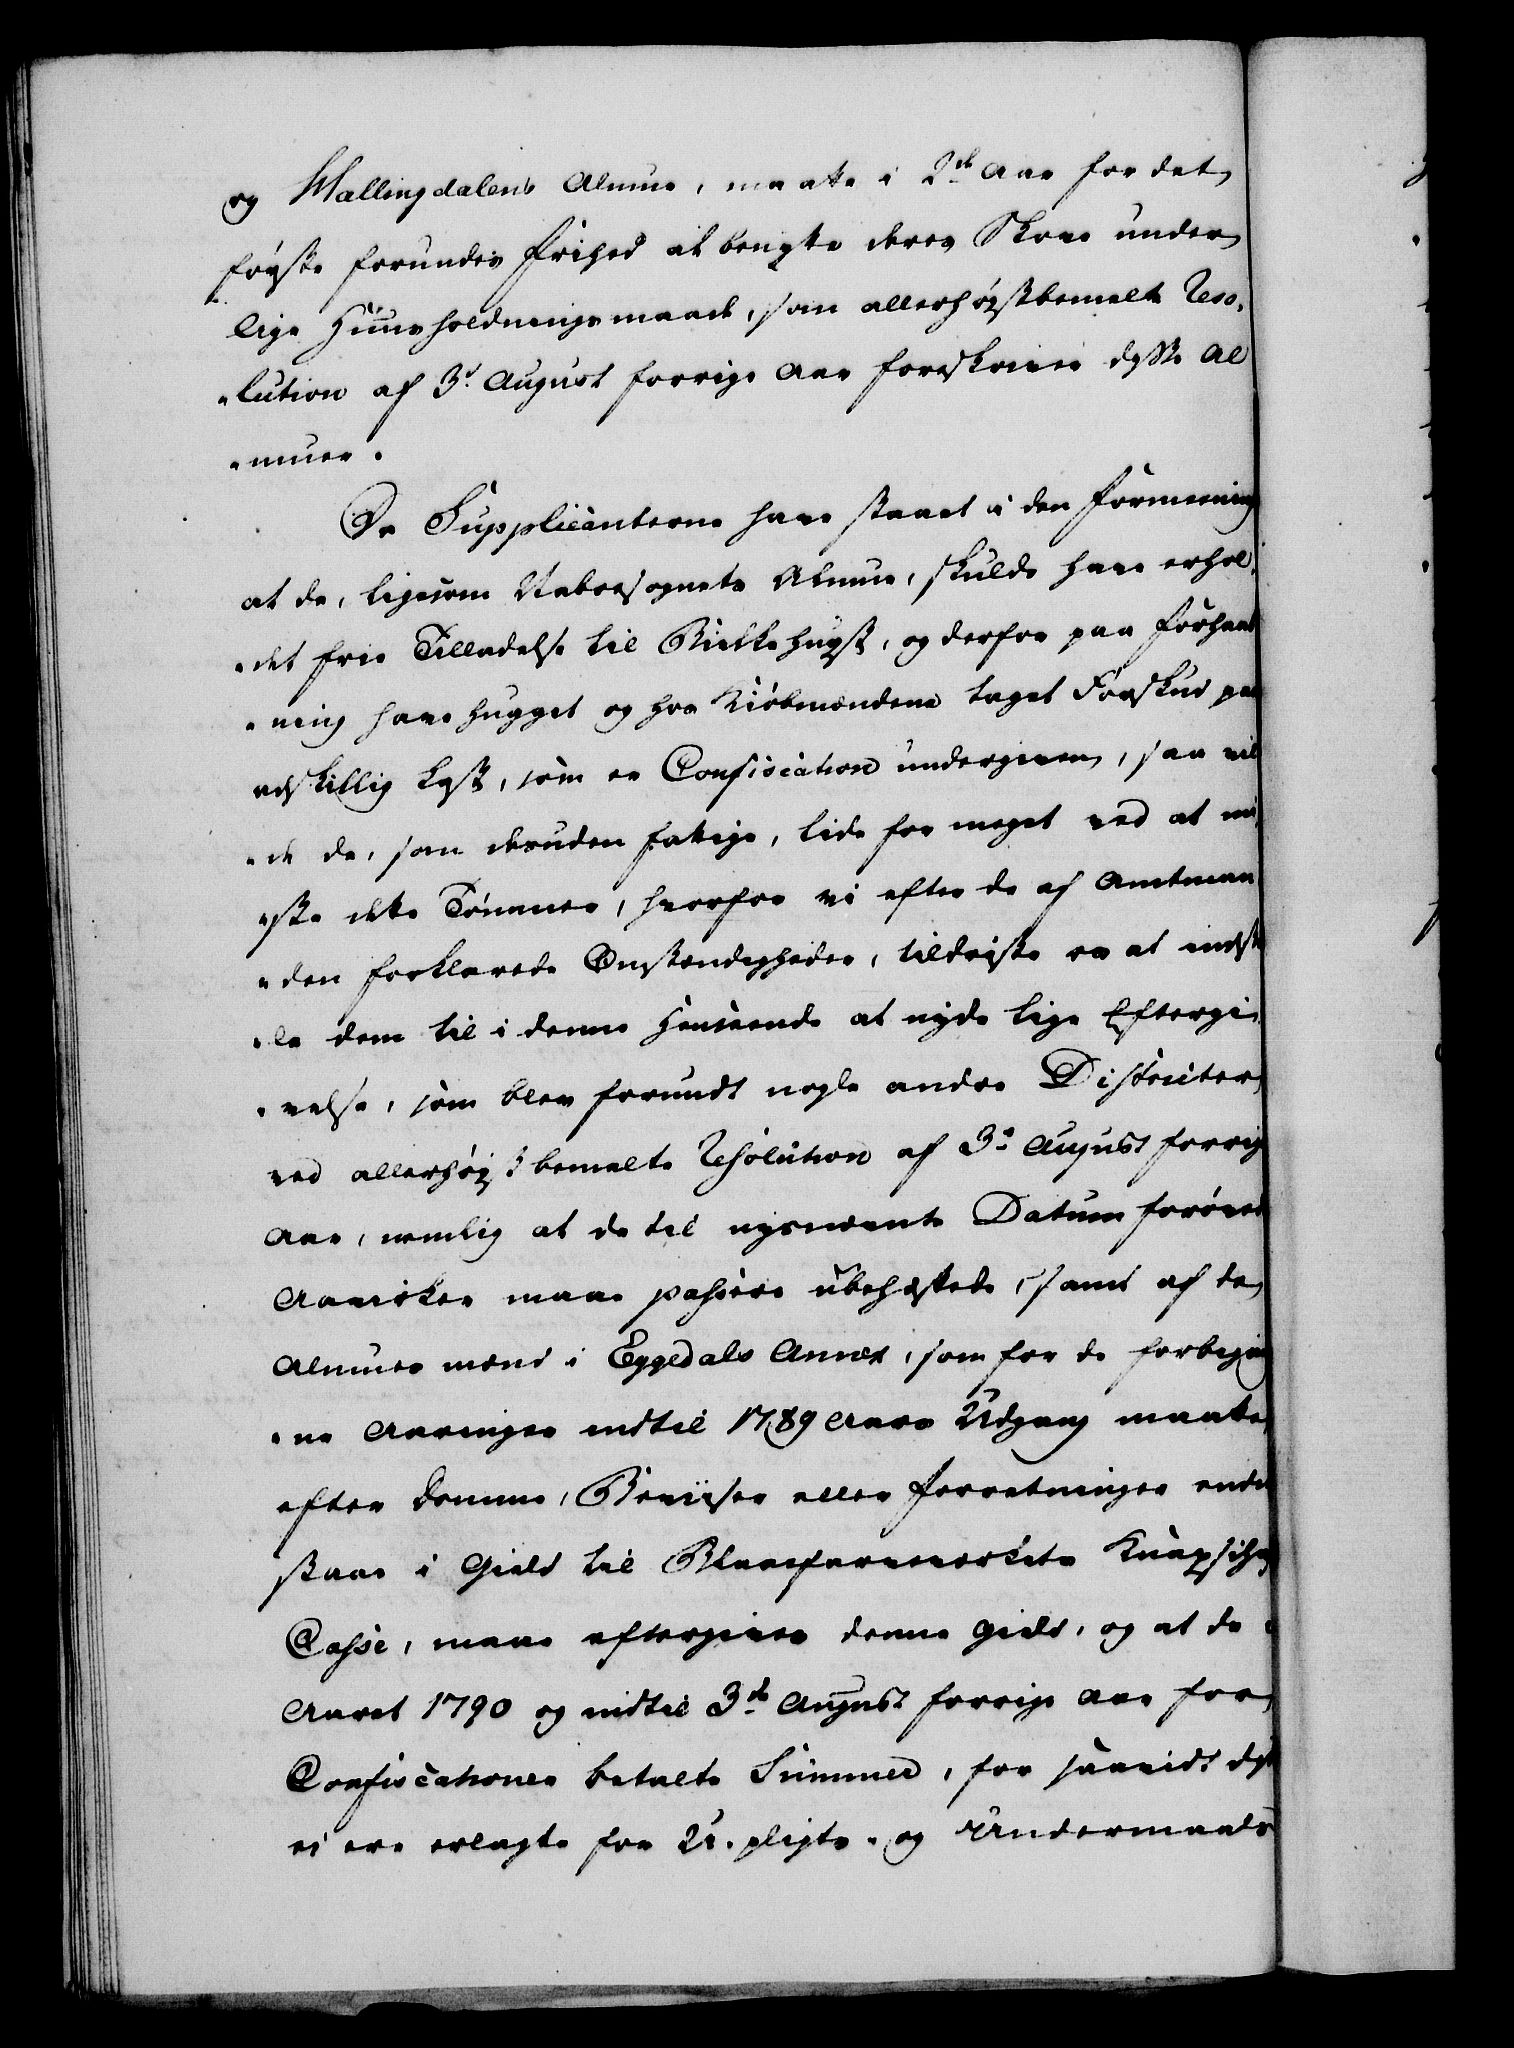 og Hallingdalens Almue, maatte i 2de Aar for det
første forundes Frihed at benytte deres Skove under
lige Huusholdningsmaade, som allerhøistbemelte Reso-
-lution af 3d August forrige Aar foreskriver disse Al
-muer.
Da Supplicanterne have staaet i den Formeening
at de, ligesom Nabosognets Almue, skulde have erhol-
-det frie Tilladelse til Bielkehugst, og derfor paa Forhaab
-ning have hugget og hos Kiøbmændene taget Forskud paa
adskillig Last, som er Confiscation undergiven, saa vil
-de de, som desuden fattige, lide for meget ved at mi
-ste dette Tømmer, hvorfor vi efter de af Amtman
-den forklarede Omstændigheder, tildriste os at indstil
-le dem til i denne Henseende at nyde lige Eftergi-
-velse, som blev forundt nogle andre Districter
ved allerhøistbemelte Resolution af 3d August forrige
Aar, nemlig at de til nysnævnte Datum forøvede
Aavirker maae passere ubehæftede, samt at de
Almues mænd i Eggedals Annex, som for de forbigang
-ne Aaringer indtil 1789 Aars Udgang maatte
efter Domme, Beviiser eller Forretninger endnu
staae i Gield til Blaafarveværkets Knapschafts
Casse, maae eftergives denne Gield, og at de i
Aaret 1790 og indtil 3de August forrige Aar for
Confiscationer betalte Summer, for saavidt disse
ei ere erlagte for U-pligts- og Undermaals